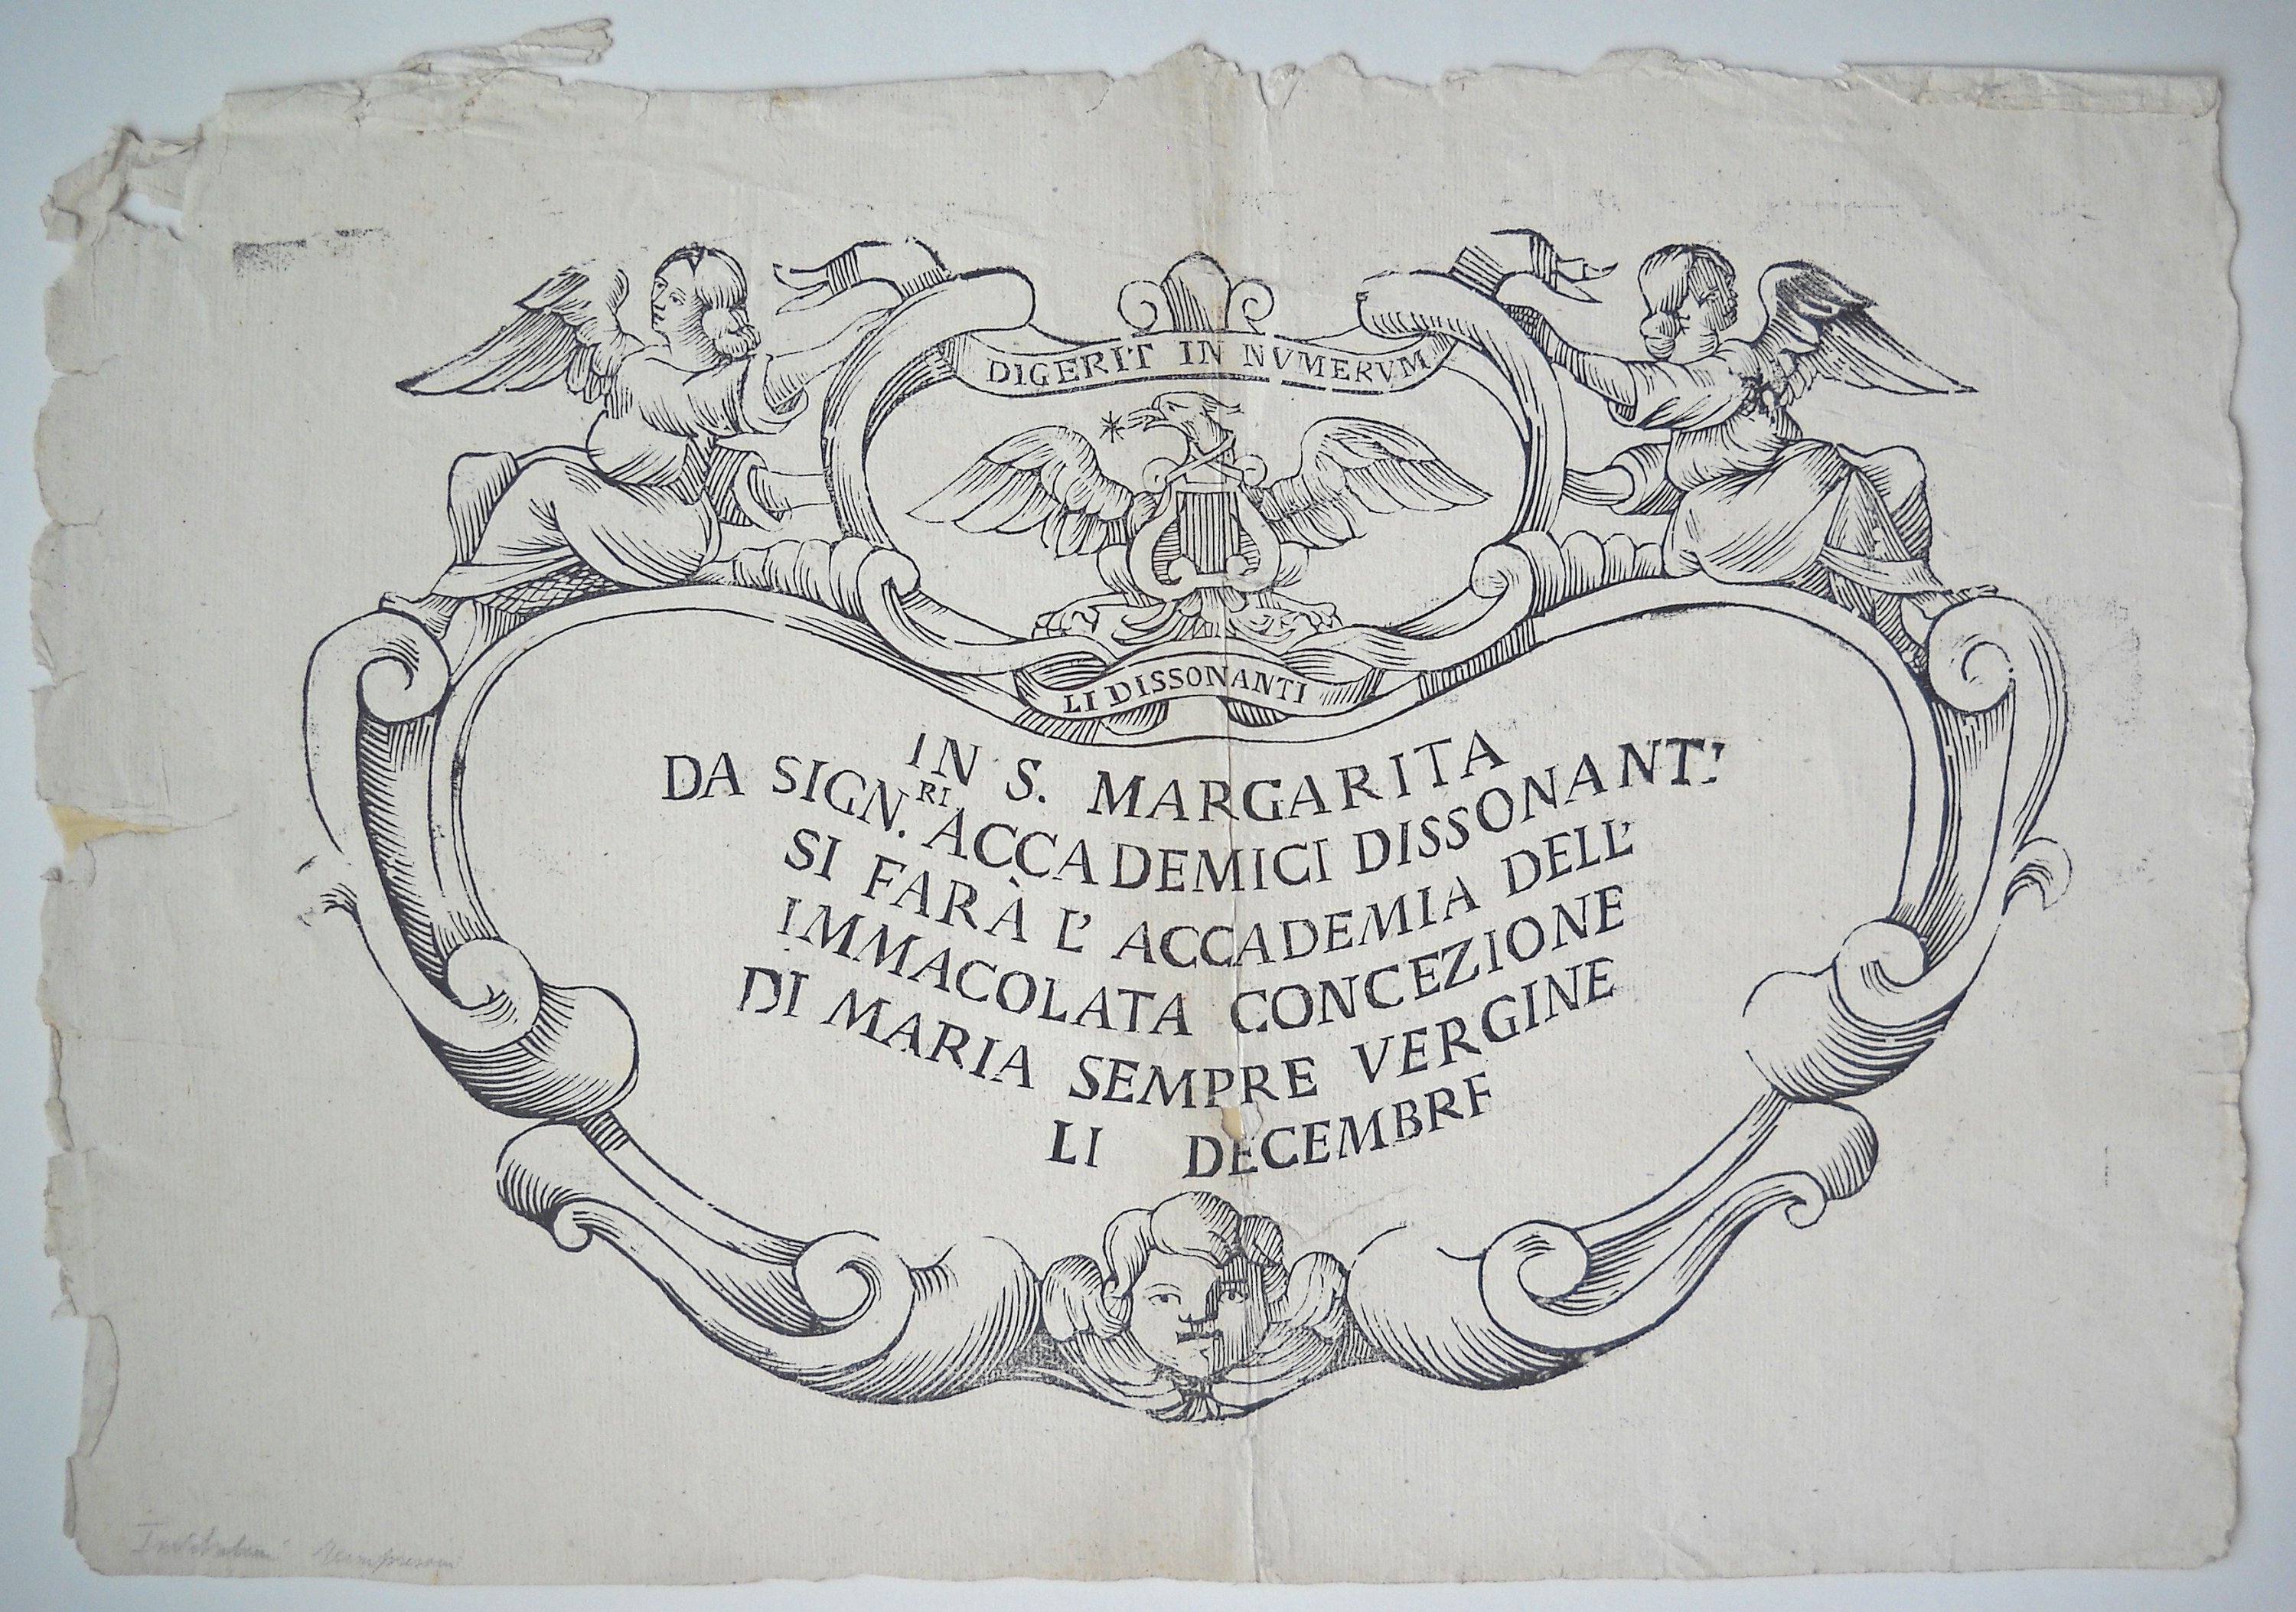 DIGERIT IN NVMERVM
LI DISSONANTI
IN S. MARGARITA
DA SIGN.RI ACCADEMICI DISSONANT.'
SI FARÀ L' ACCADEMIA DELL'
IMMACOLATA CONCEZIONE
DI MARIA SEMPRE VERGINE
LI DECEMBRE